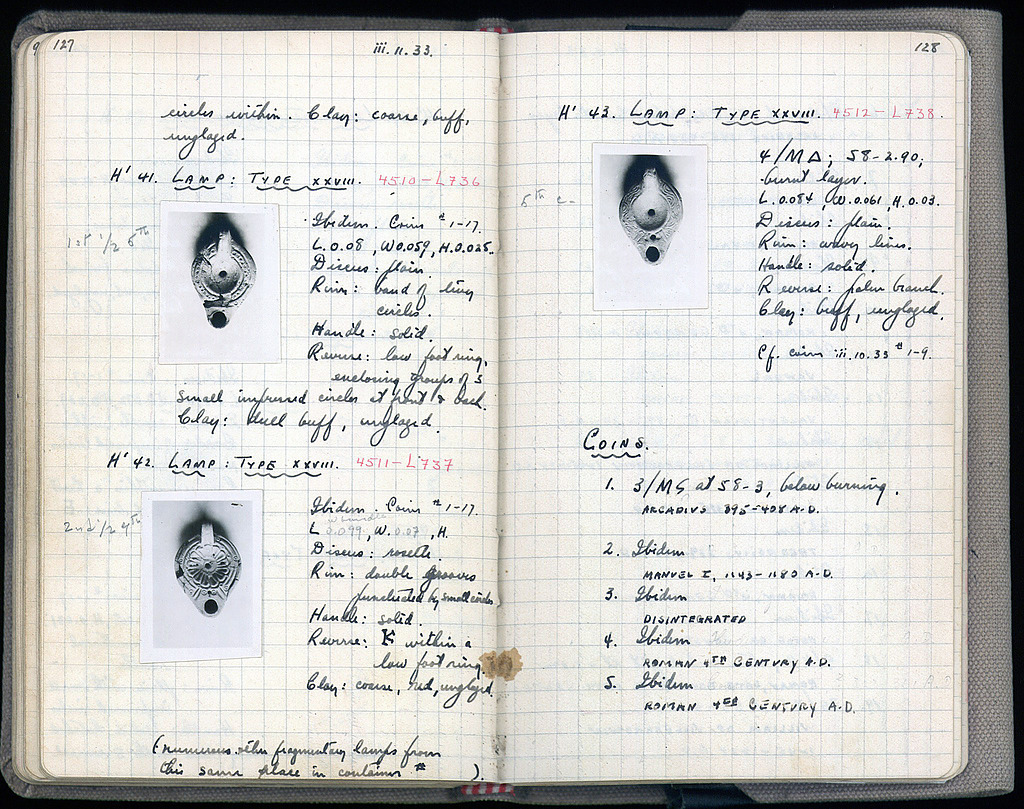 127
iii.11.33.
circles within. Clay: coarse, buff,
unglazed.
H' 41. LAMP: TYPE XXVIII. 4510-L736
1st 1/2 5th
Ibidem. Coins #1-17.
L. 0.08, W 0.059, H. 0.025.
Discus: plain.
Rim: band of tiny
circles.
Handle: solid.
Reverse: low foot ring,
enclosing groups of 5
small impressed circles at front & back.
Clay: dull buff, unglazed.
H' 42. LAMP: TYPE XXVIII. 4511-L737
2nd 1/2 4th
Ibidem. Coins #1-17.
w handle
L 0.099, W. 0.07, H.
Discus: rosette.
Rim: double grooves
punctuated by small circles
Handle: solid.
Reverse: within a
low foot ring.
Clay: coarse, red, unglazed.
(numerous other fragmentary lamps from
this same place in container # ).
128
H' 43. LAMP: TYPE XXVIII. 4512-L738.
5th c-
4/MΔ; 58-2.90;
burnt layer.
L. 0.084, W. 0.061, H. 0.03.
Discus: plain.
Rim: wavy lines.
Handle: solid.
Reverse: palm branch.
Clay: buff, unglazed.
Cf. coins iii.10.33 #1-9.
COINS.
1. 3/MS at 58-3, below burning.
ARCADIUS 395-408 A.D.
2. Ibidem
MANUEL I, 1143-1180 A.D.
3. Ibidem
DISINTEGRATED
4. Ibidem
ROMAN 4TH CENTURY A.D.
5. Ibidem
ROMAN 4TH CENTURY A.D.